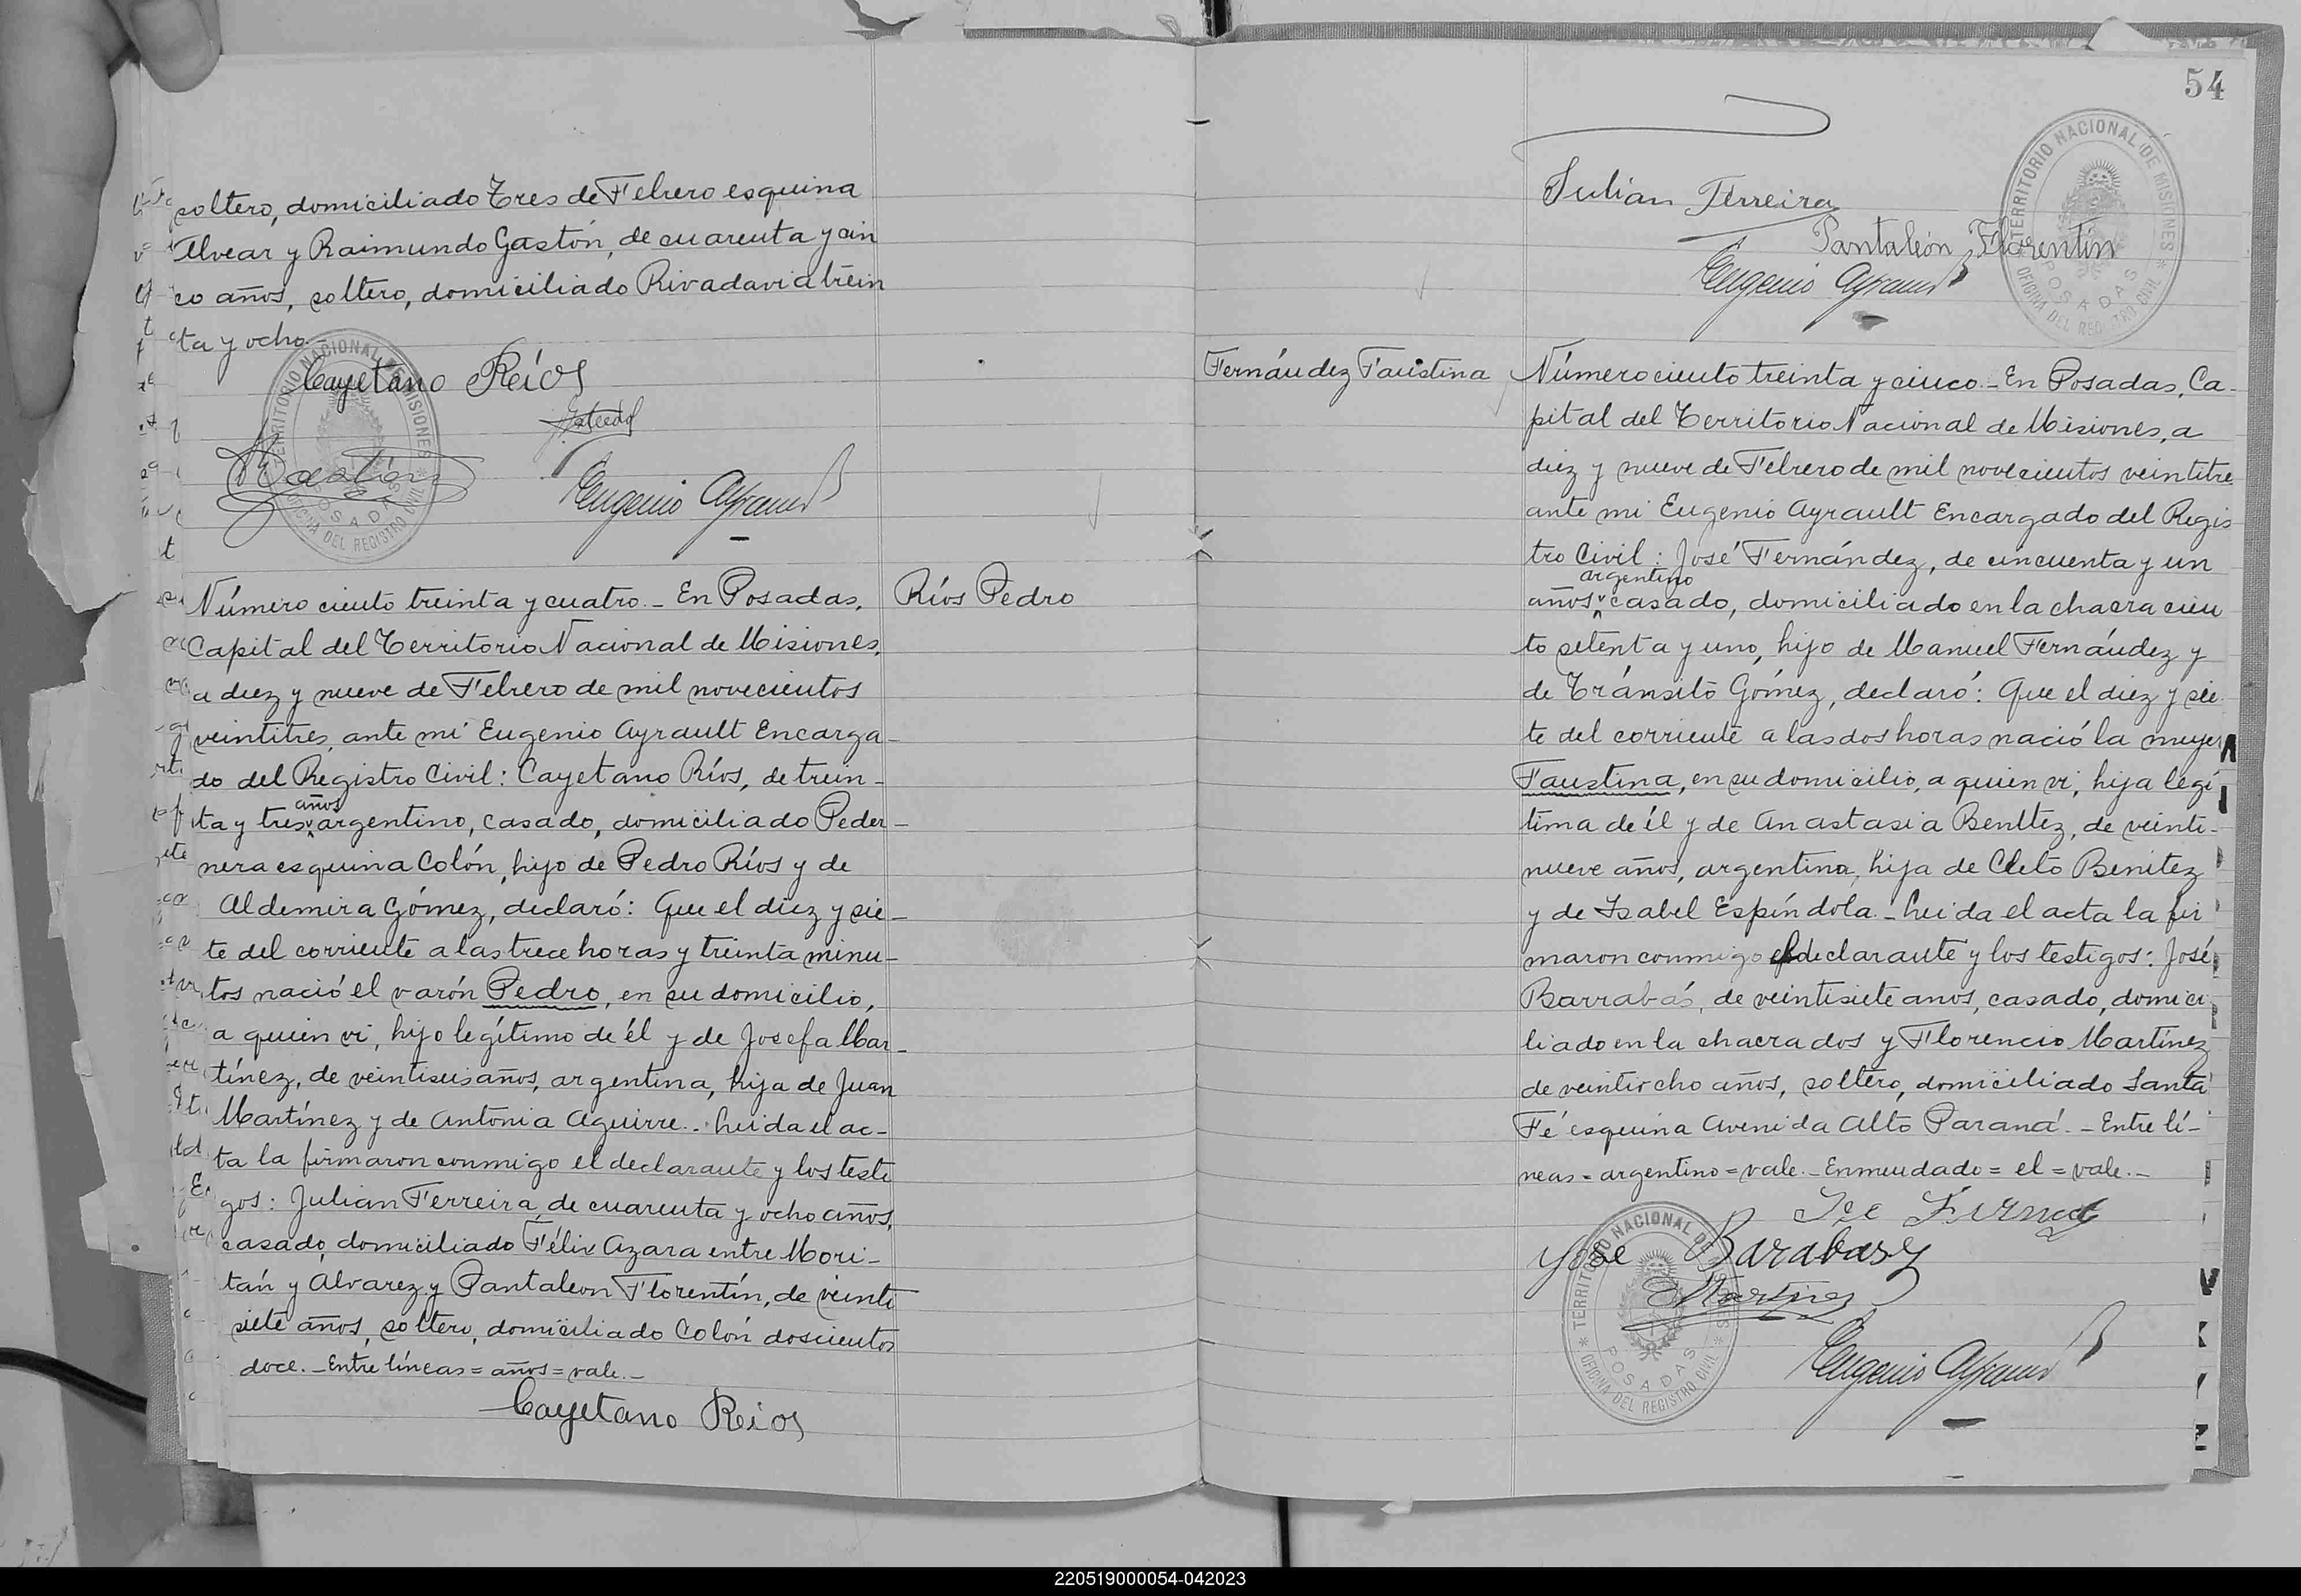 soltero, domiciliado Tres de Febrero esquina
Alvear y Raimundo Gastón, de cuarenta y cin
co años, soltero, domiciliado Rivadavia trein
ta y ocho.-
Cayetano Reíos
Gastón
Eugenio Ayrault
Número ciento treinta y cuatro.- En Posadas,
Ríos Pedro
Capital del Territorio Nacional de Misiones,
a diez y nueve de Febrero de mil novecientos
veintitres, ante mi Eugenio Ayrault Encarga-
do del Registro Civil: Cayetano Ríos, de trein-
años
ta y tres argentino, casado, domiciliado Peder-
nera esquina Colón, hijo de Pedro Ríos y de
Aldemira Gómez, declaró: Que el diez y sie-
te del corriente a las trece horas y treinta minu-
tos nació el varón Pedro, en su domicilio,
a quien vi, hijo legítimo de él y de Josefa Mar-
tínez, de veintiseis años, argentina, hija de Juan
Martínez y de Antonia Aguirre.- Leida el ac-
ta la firmaron conmigo el declarante y los testi
gos: Julian Ferreira, de cuarenta y ocho años,
casado, domiciliado Félix Azara entre Mori-
tán y Alvarez y Pantaleon Florentín, de veinti
siete años, soltero, domiciliado Colón doscientos
doce.- Entre líneas = años = vale.-
Cayetano Reios
54
Julian Ferreira
Pantaleón Florentín
Eugenio Ayrault
TERRITORIO NACIONAL DE MISIONES
POSADAS
OFICINA DEL REGISTRO CIVIL
Fernández Faustina
Número ciento treinta y cinco.- En Posadas, Ca-
pital del Territorio Nacional de Misiones, a
diez y nueve de Febrero de mil novecientos veintitre
ante mi Eugenio Ayrault Encargado del Regis
tro Civil: José Fernández, de cincuenta y un
argentino
años, casado, domiciliado en la chacra cien
to setenta y uno, hijo de Manuel Fernández y
de Tránsito Gómez, declaró: Que el diez y sie
te del corriente a las dos horas nació la mujer
Faustina, en su domicilio, a quien vi, hija legí
tima de él y de Anastasia Benítez, de veinti-
nueve años, argentina, hija de Cleto Benítez
y de Isabel Espíndola.- Leida el acta la fir
maron conmigo el declarante y los testigos: José
Barrabás, de veintisiete anos, casado, domici
liado en la chacra dos y Florencio Martínez
de veintiocho años, soltero, domiciliado Santa
Fé esquina Avenida Alto Paraná.- Entre lí-
neas = argentino = vale.- Enmendado = el = vale.-
Yose Barabasy
Martinez
Eugenio Ayrault
TERRITORIO NACIONAL DE MISIONES
POSADAS
OFICINA DEL REGISTRO CIVIL
220519000054-042023